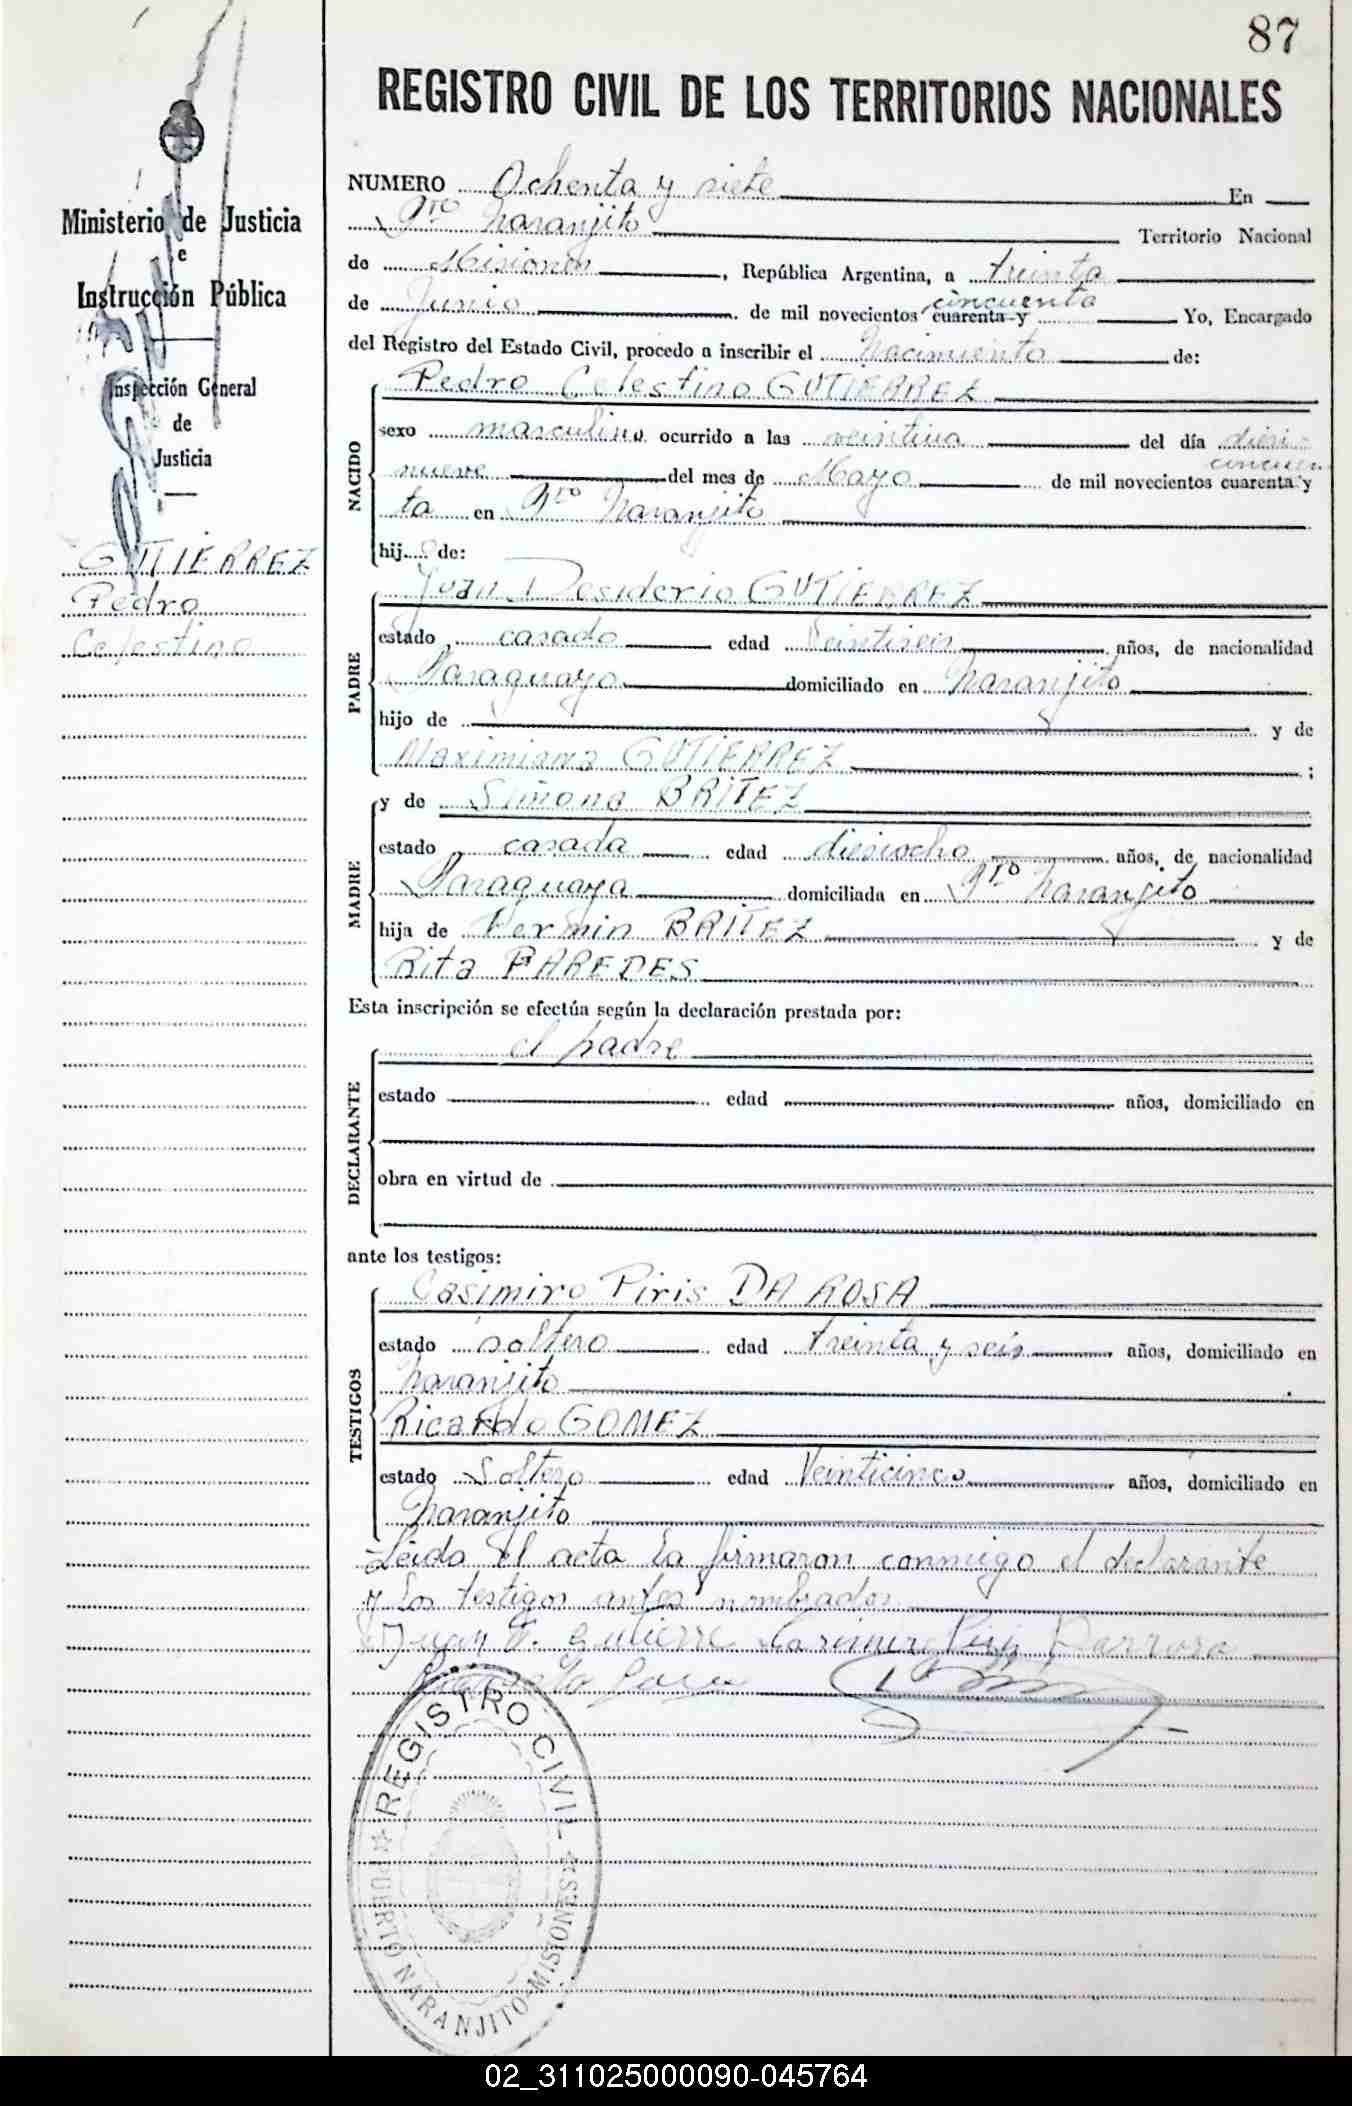 87
REGISTRO CIVIL DE LOS TERRITORIOS NACIONALES
Ministerio de Justicia
e
Instrucción Pública
Inspección General
de
Justicia
GUTIERREZ
Pedro
Celestino
NUMERO Ochenta y siete En
Pto Naranjito Territorio Nacional
de Misiones, República Argentina, a treinta
cincuenta
de Junio de mil novecientos cuarenta y Yo, Encargado
del Registro del Estado Civil, procedo a inscribir el Nacimiento de:
NACIDO
Pedro Celestino GUTIERREZ
sexo masculino ocurrido a las veintiuna del día dieci-
cincuen
nueve del mes de Mayo de mil novecientos cuarenta y
ta en Pto Naranjito
hij o de:
PADRE
Juan Desiderio GUTIERREZ
estado casado edad veintiseis años, de nacionalidad
Paraguayo domiciliado en Naranjito
hijo de y de
Maximiana GUTIERREZ ;
MADRE
y de Simona BRITEZ
estado casada edad diesiocho años, de nacionalidad
Paraguaya domiciliada en Pto Naranjito
hija de Fermin BRITEZ y de
Rita PAREDES
Esta inscripción se efectúa según la declaración prestada por:
DECLARANTE
el padre
estado edad años, domiciliado en
obra en virtud de
ante los testigos:
TESTIGOS
Casimiro Piris DA ROSA
estado soltero edad treinta y seis años, domiciliado en
Naranjito
Ricardo GOMEZ
estado Soltero edad Veinticinco años, domiciliado en
Naranjito
Leida el acta la firmaron conmigo el declarante
y los testigos antes nombrados
Juan D. Gutierre Casimiro Piris Darrosa
REGISTRO CIVIL
PUERTO NARANJITO-MISIONES
02_311025000090-045764